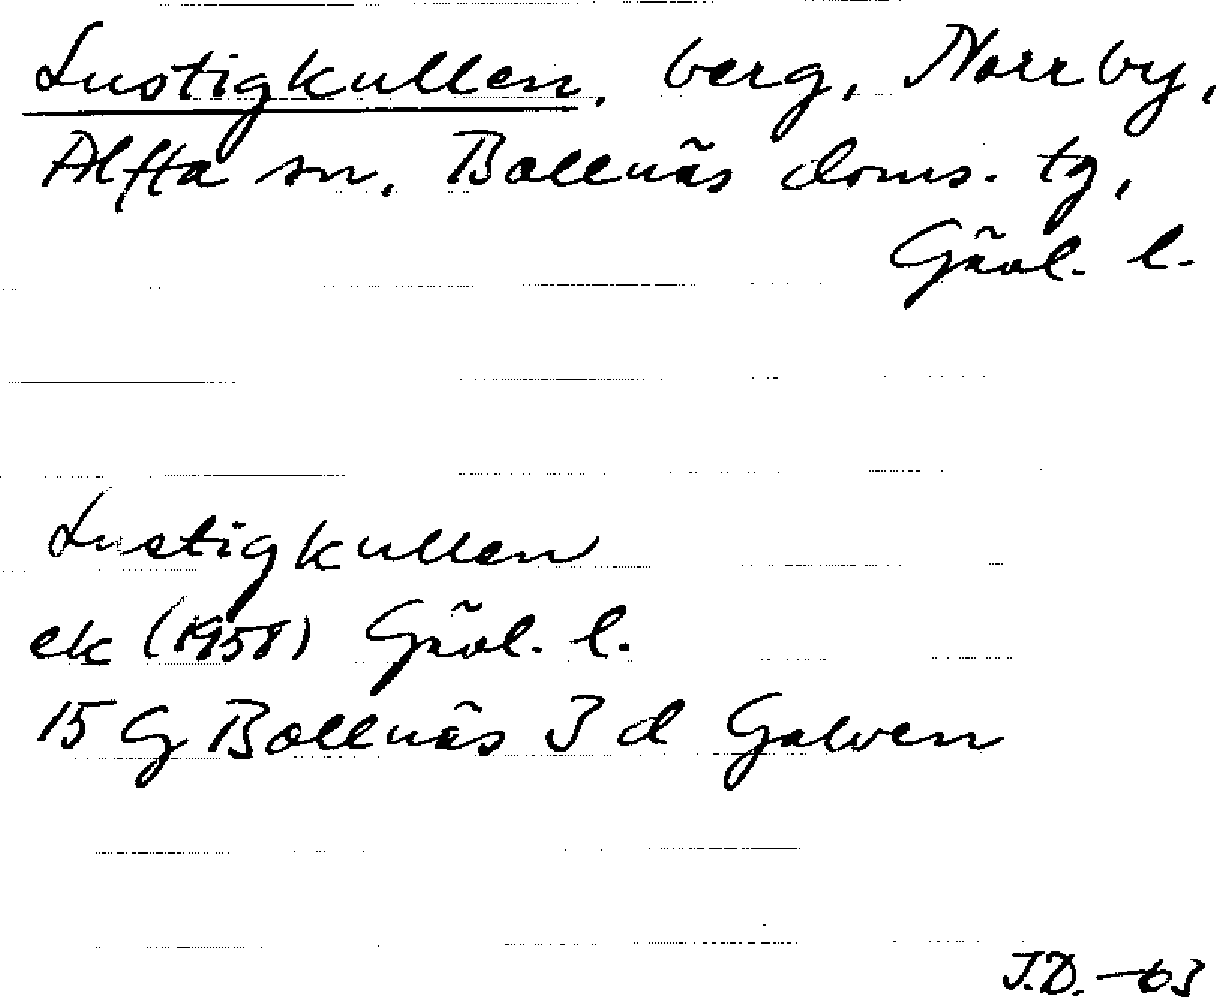 Lustigkullen, berg, Norrby,
Alfta sn, Bollnäs doms. tg,
Gävl. l.
Lustigkullen
ek (1958) Gävl. l.
15 G Bollnäs 3 d Galven
J.D. -63